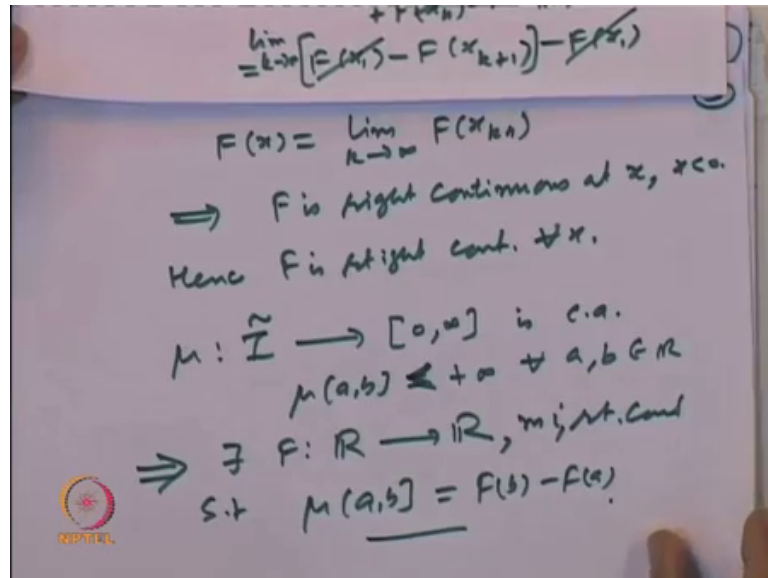 + F(xₙ)
= lim_{k→∞} [F(x₁) - F(x_{k+1})] - F(x₁)
F(x) = lim_{k→∞} F(x_{k+1})
⟹ F is right continuous at x, x<0.
Hence F is right cont. ∀ x.
μ : Ĩ ⟶ [0,∞] is c.a.
μ(a,b] < +∞ ∀ a,b ∈ ℝ
⟹ ∃ F: ℝ ⟶ ℝ, m.i, rt. cont
S.t μ(a,b] = F(b) - F(a).
NPTEL